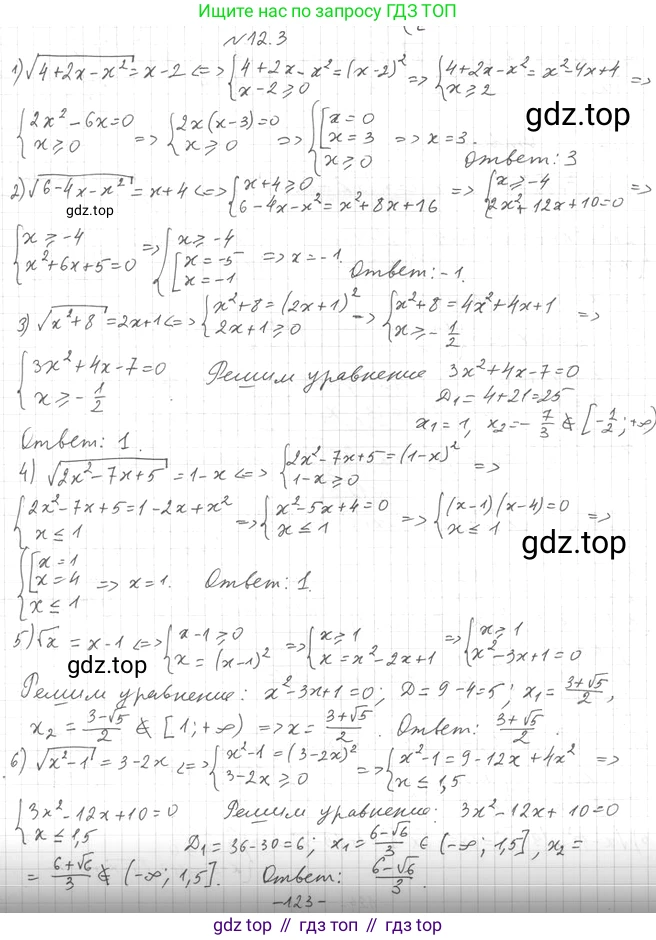 Ищите нас по запросу ГДЗ ТОП
№12.3
1) √(4+2x-x²) = x-2 <=> {4+2x-x²=(x-2)² x-2≥0 => {4+2x-x²=x²-4x+4 x≥2 =>
{2x²-6x=0 x≥0 => {2x(x-3)=0 x≥0 => {[x=0 x=3 x≥0 => x=3.
gdz.top
Ответ: 3
2) √(6-4x-x²) = x+4 <=> {x+4≥0 6-4x-x²=x²+8x+16 => {x≥-4 2x²+12x+10=0 =>
gdz.top
{x≥-4 x²+6x+5=0 => {x≥-4 [x=-5 x=-1 => x=-1. Ответ: -1.
3) √(x²+8) = 2x+1 <=> {x²+8=(2x+1)² 2x+1≥0 => {x²+8=4x²+4x+1 x≥-1/2 =>
{3x²+4x-7=0 x≥-1/2. Решим уравнение 3x²+4x-7=0
D₁=4+21=25
x₁=1, x₂=-7/3 ∉ [-1/2; +∞)
Ответ: 1.
4) √(2x²-7x+5) = 1-x <=> {2x²-7x+5=(1-x)² 1-x≥0 =>
{2x²-7x+5=1-2x+x² x≤1 => {x²-5x+4=0 x≤1 => {(x-1)(x-4)=0 x≤1 =>
gdz.top
{[x=1 x=4 x≤1 => x=1. Ответ: 1.
5) √x = x-1 <=> {x-1≥0 x=(x-1)² => {x≥1 x=x²-2x+1 => {x≥1 x²-3x+1=0
gdz.top
Решим уравнение: x²-3x+1=0; D=9-4=5; x₁=(3+√5)/2,
x₂=(3-√5)/2 ∉ [1; +∞) => x=(3+√5)/2. Ответ: (3+√5)/2.
6) √(x²-1) = 3-2x <=> {x²-1=(3-2x)² 3-2x≥0 => {x²-1=9-12x+4x² x≤1,5 =>
{3x²-12x+10=0 x≤1,5 Решим уравнение: 3x²-12x+10=0
D₁=36-30=6; x₁=(6-√6)/3 ∈ (-∞; 1,5], x₂=
=(6+√6)/3 ∉ (-∞; 1,5]. Ответ: (6-√6)/3.
-123-
gdz top // gdz top // gdz.top